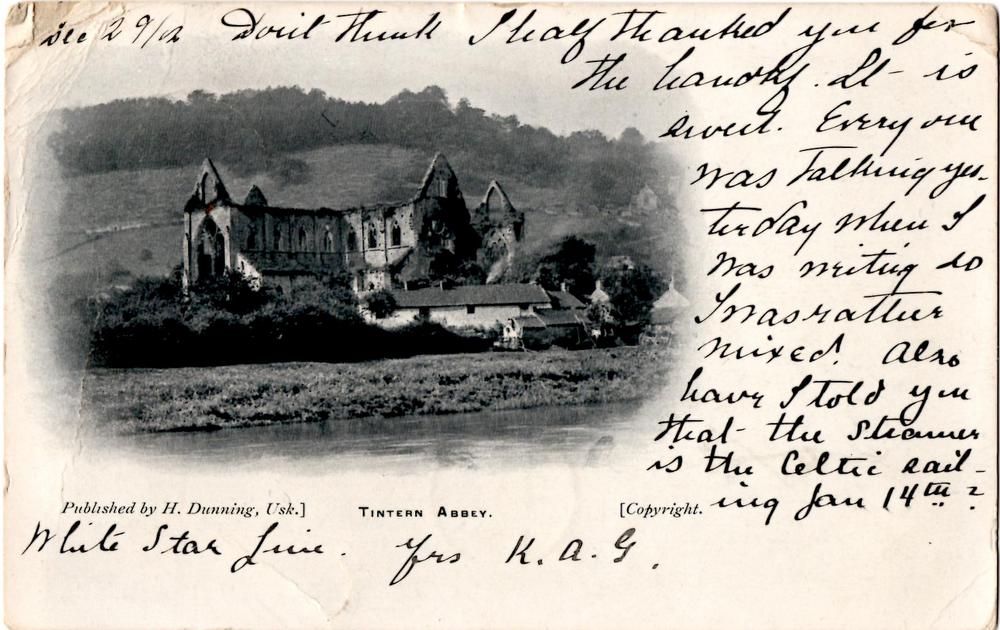 Dec 29/02 Don't think I half thanked you for
the handkf. It is
sweet. Every one
was talking yes-
terday when I
was writing so
I was rather
mixed! Also
have I told you
that the steamer
is the Celtic sail-
ing Jan 14th?
Published by H. Dunning, Usk.] TINTERN ABBEY. [Copyright.
White Star Line. Yrs K. A. G.